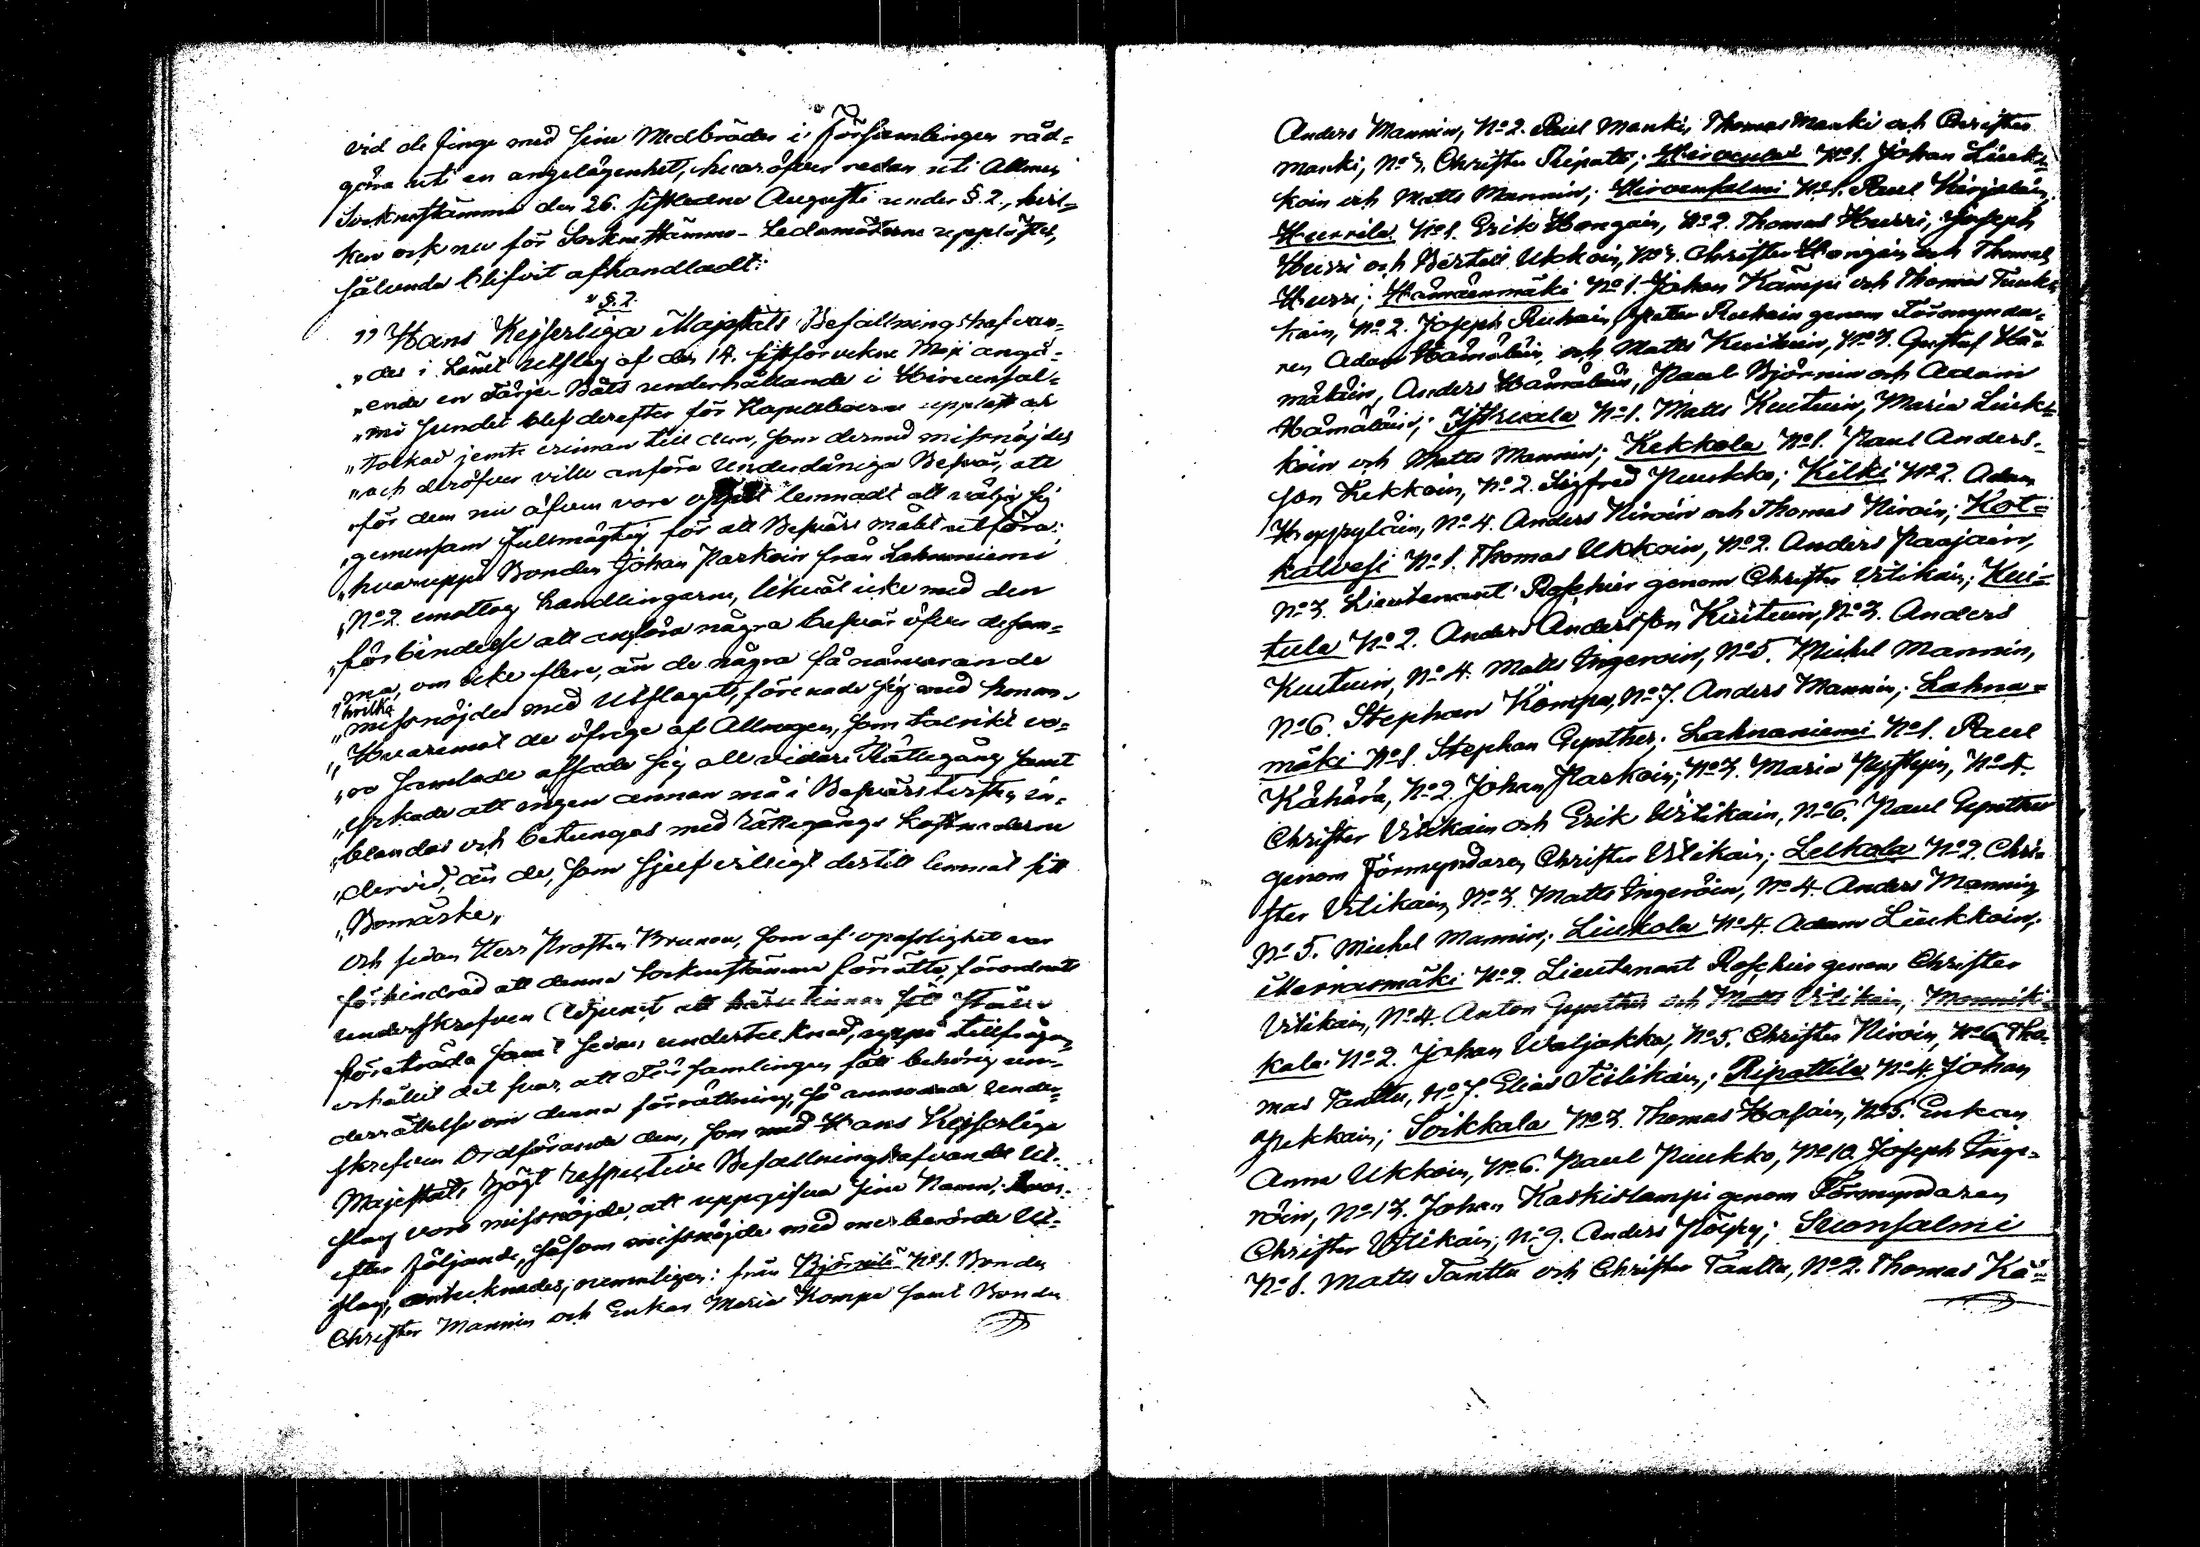 vid de finge med sine Medbröder i Församlingen råd=
göra uti en angelägenhet, hvaröfver redan uti Allmen
Sockenstämma den 26. sistledne Augusti under §.2., hvil=
ken ock nu för Sockenstämmo-Ledamöterne upplästes,
sålunda blifvit afhandladt:
"§.2.
"Hans Kejserliga Majestäts Befallningshafvan=
"des i Länet Utslag af den 14. sistförvekne Maji angå=
"ende en Färje-Båts underhållande i Hirvensal=
"mi sundet blef derefter för Kapellboerne uppläst och
"tolkad jemte eriman till dem, som dermed missnöjdes
"och deröfver ville anföra Underdåniga Besvär, att
"för dem nu äfven vore öppet lemnadt att välja sig
"gemensam fullmägtig för att Besvärs målet utföra;
"hvaruppå Bonden Johan Parkoin från Lahnaniemi
"No 2. emottog handlingarne, likväl icke med den
"förbindelse att anföra några besvär öfver desam=
"ma, om icke flere, än de några få närvarande
"hvilka
"missnöjdes med Utslaget, förenade sig med honom.
"Hvaremot de öfrige af Allmogen, som talrikt vo=
"ro samlade afsade sig all vidare Rättegång samt
"yrkade att ingen annan må i Besvärsskriften in=
"blandas och betungas med rättegångs kostnaderne
"dervid, än de, som sjelfvilligt dertill lemnat sitt
"Bomärke„
Och sedan Herr Prosten Brunou, som af opasslighet var
förhindrad att denna Sockenstämma förrätta, förordnat
underskrefven Adjunct att härutinnan sitt ställe
företräda samt sedan undertecknad, uppå tillfrågan
erhållit det svar, att Församlingen fått behörig un=
derrättelse om denna förrättning, så anmodade under=
skrefven Ordförande dem, som med Hans Kejserliga
Majestäts högt respective Befallningshafvandes Ut=
slag voro missnöjde, att uppgifva sine Namn; hvar=
efter följande, såsom missnöjde med merberörde Ut=
slag, antecknades, nemmligen: från Björnilä No 1. Bonden
Christer Mannin och Enkan Maria Kompa samt Bonden
Anders Mannin, No 2. Paul Manki, Thomas Manki och Christer
Manki, No 3. Christer Ripatti; No 1. Johan Liuk=
koin och Matts Mannin; Hirvensalmi No 1. Paul Karjalain,
Hurrila No 1. Erik Hongain, No 2. Thomas Hurri, Joseph
Hurri och Bertell Ukkoin, No 3. Christer Hongain och Thomas
Hurri; Hämäenmäki No 1. Johan Kämpi och Thomas Tuuk=
kain, No 2. Joseph Ruhain, Petter Ruhain genom Förmynda=
ren Adam Hämäläin, och Matts Kuituin, No 3. Gustaf Hä=
mäläin, Anders Hämäläin, Paul Björnin och Adam
Hämäläin; No 1. Matts Kuituin, Maria Liuk=
koin och Matts Mannin; Kekkola No 1. Paul Anders=
son Kekkoin, No 2. Sigfred Puukko; Kilki No 2. Adam
Heppyläin, No 4. Anders Niroin och Thomas Niroin; Kot=
kalvesi No 1. Thomas Ukkoin, No 2. Anders Paajain,
No 3. Lieutenant Roschier genom Christer Vitikain; Kui=
tula No 2. Anders Andersson Kuituin, No 3. Anders
Kuituin, No 4. Matts Ingeroin, No 5. Michel Mannin,
No 6. Stephan Kompa, No 7. Anders Mannin; Lahna=
mäki No 1. Stephan Gynther; Lahnaniemi No 1. Paul
Kähärä, No 2. Johan Parkoin; No 3. Maria No 4.
Christer Vitikain och Erik Vitikain, No 6. Paul Gynther
genom Förmyndaren Christer Vitikain; Leikola No 2. Chri=
ster Vitikain, No 3. Matts Ingeröin, No 4. Anders Mannin
No 5. Michel Mannin; Liukola No 4. Adam Liukkoin;
No 2. Lieutenant Roschier genom Christer
Vitikain, No 4. Anton Gynther och Matts Vitikain; Monniki=
kala No 2. Johan Waljakka, No 5. Christer Niroin, No 6. Tho=
mas Tanttu, No 7. Elias Tiilikain; Ripattila No 4. Johan
Pekkain; Soikkala No 3. Thomas Hasain, No 5. Enkan
Anna Ukkoin, No 6. Paul Puukko, No 10. Joseph Inge=
röin, No 13. Johan Kaskislampi genom Förmyndaren
Christer Vitikain; No 9. Anders Pöyry; Suonsalmi
No 1. Matts Tanttu och Christer Tanttu, No 2. Thomas Kä=